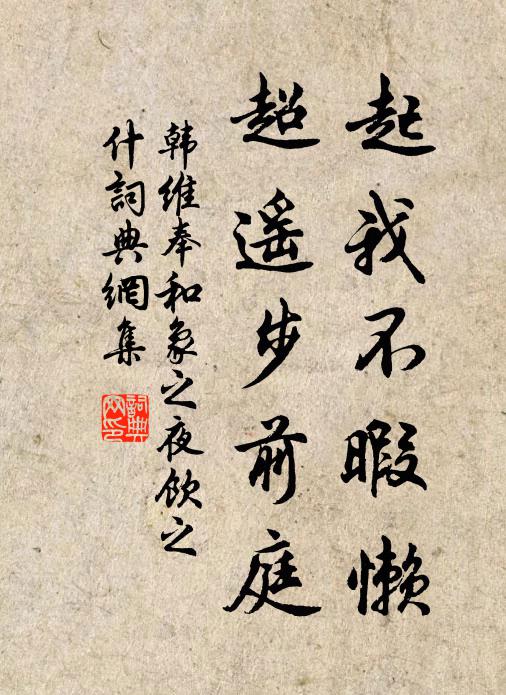 起我不暇懒
超遥步前庭
韩维奉和象之夜饮之
什詞典網集
詞典网印